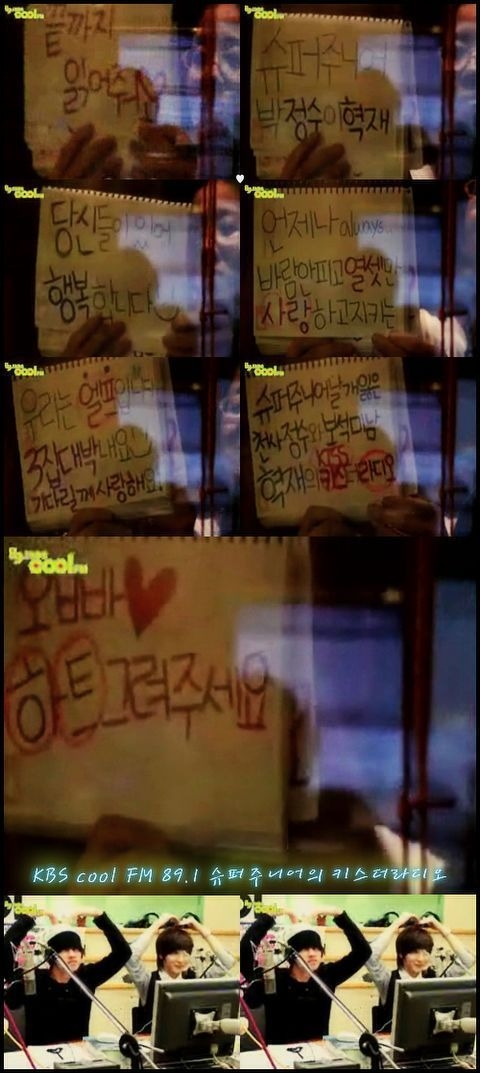 끝까지
읽어주세요
슈퍼주니어
박정수이혁재
당신들이 있어
행복합니다
언제나 always..
바람안피고 열셋만
사랑하고지키는
우리는 엘프입니다
3집대박내요
기다릴께 사랑해요
슈퍼주니어날개잃은
천사정수와보석미남
혁재의 KISS
키스더라디오
cool FM
오빠♥
하트그려주세요
KBS cool FM 89.1 슈퍼주니어의 키스더라디오